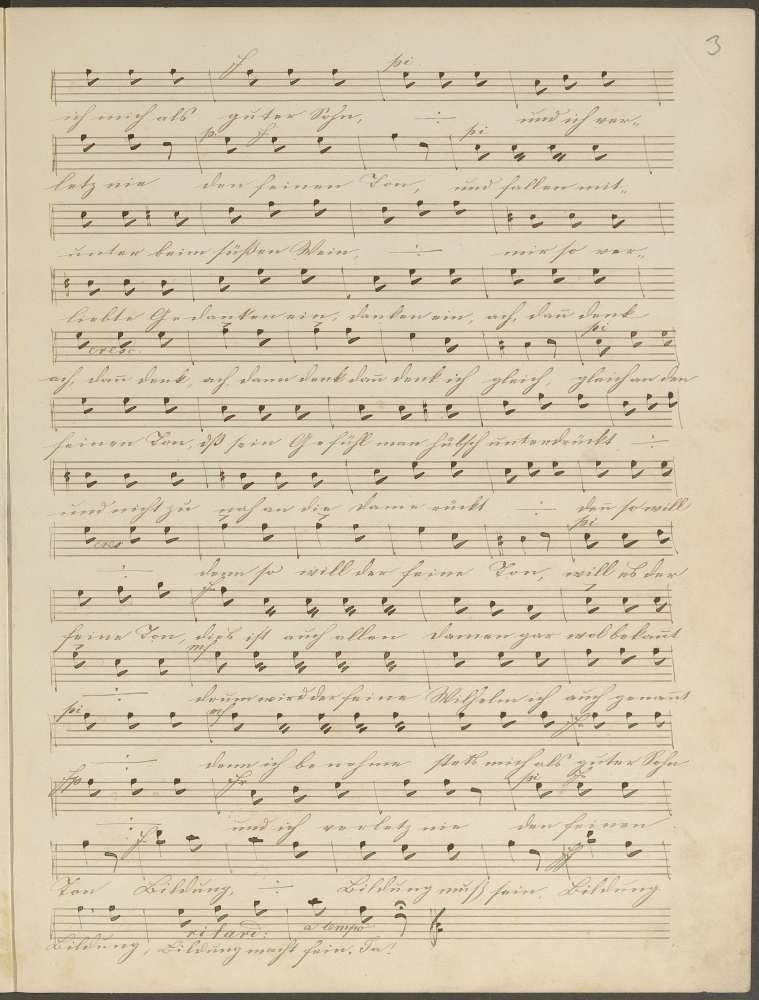 3
pi
ich mich als guter Sohn, ÷ und ich ver=
p. pi
letz nie den feinen Ton, und fallen mit=
unter beim süßen Wein, ÷ mir so ver=
liebte Gedanken ein, danken ein, ach, dañ denk
cresc. pi
ach, dañ denk, ach dann denk dañ denk ich gleich, gleich an den
feinen Ton, sein Gefühl man hübsch unterdrückt ÷
und nicht zu nah an die Dame rückt ÷ deñ so will
cres pi
÷ denn so will der feine Ton, will es der
feine Ton, dies ist auch allen Damen gar wol bekañt
mf
÷ drum wird der feine Wilhelm ich auch genañt
pi mf
÷ denn ich benehme stets mich als guter Sohn
pi
÷ und ich verletz nie den feinen
Ton Bildung, ÷ Bildung muß sein. Bildung
ritard: a tempo
Bildung, Bildung macht fein. Ja!